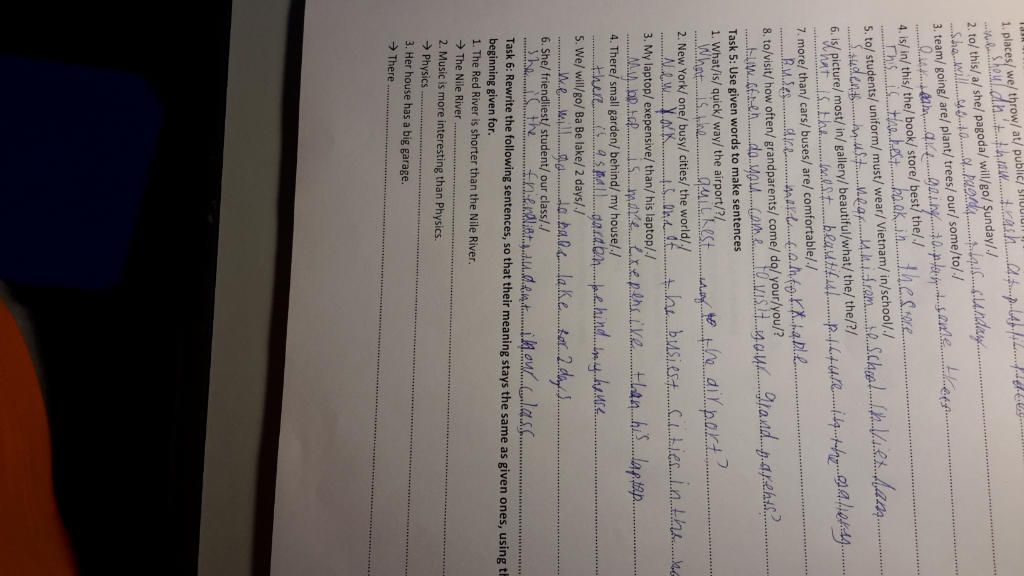 1. places/ we/ throw/ at/ public/
we shouldn't throw trash at public places
2. to/ this/ a/ she/ pagoda/ will/go/ Sunday/./
She will go to a pagoda this
3. team/ going/ are/ plant/ trees/ our/ some/to/./
Our team are going to some trees
4. is/ in/ this/ the/ book/ store/ best/ the/./
This is the best book in the
5. to/ students/ uniform/ must/ wear/ Vietnam/ in/school/./
must wear school in
6. is/ picture/ most/ in/ gallery/ beautiful/what/ the/ the/?/
what is the most beautiful picture in the
7. more/ than/ cars/ buses/ are/ comfortable/./
Buses are more
8. to/visit/ how often/ grandparents/ come/ do/ your/you/?
How often do you come to visit your grand parents?
Task 5: Use given words to make sentences
1. What/is/ quick/ way/ the airport/?/
What is the to the airport?
2. New York/ one/ busy/ cities/ the world/./
New York is one of the busiest cities in the
3. My laptop/ exepensive/ than/ his laptop/./
is more exepensive than his laptop
4. There/ small garden/ behind/ my house/./
there is a small garden behind my house
5. We/ will/go/ Ba Be lake/ 2 days/./
we will go to babe lake for 2 days
6. She/ friendliest/ student/ our class/./
She is the in our class
Task 6: Rewrite the following sentences, so that their meaning stays the same as given ones, using
beginning given for.
1. The Red River is shorter than the Nile River.
→ The Nile River
2. Music is more interesting than Physics.
→ Physics
3. Her house has a big garage.
→ There